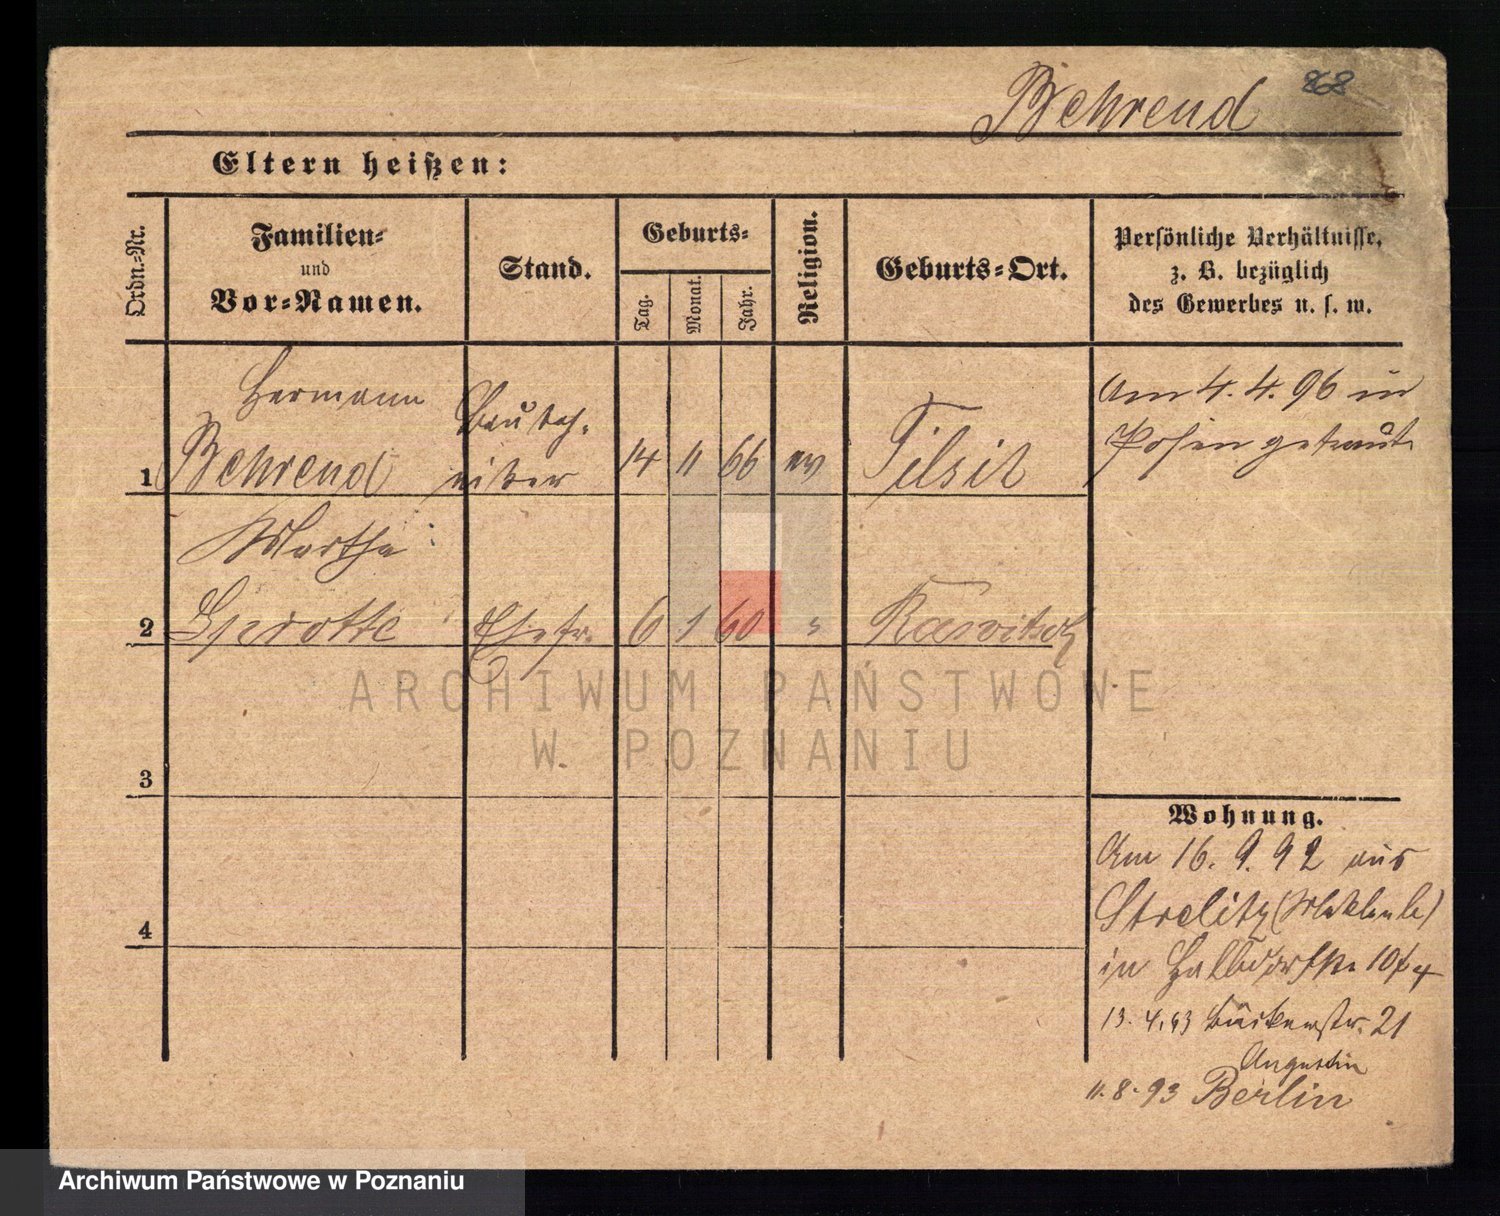 Behrend 868
Eltern heißen:
Ordn.-Nr.
Familien-
und
Vor-Namen.
Stand.
Geburts-
Tag.
Monat.
Jahr.
Religion.
Geburts-Ort.
Persönliche Verhältnisse,
z. B. bezüglich
des Gewerbes u. s. w.
Hermann
Behrend
Bautech-
niker
1 14 11 66 ev Tilsit
Am 4. 4. 96 in
Posen getraut
Martha
2 Sprotte Ehefr. 6 1 60 " Rawitsch
3
4
Wohnung.
Am 16. 9. 92 aus
Strelitz
in Halbdorfstr 10
13. 4. 93 Bäckerstr. 21
Augustin
11. 8. 93 Berlin
ARCHIWUM PAŃSTWOWE
W POZNANIU
Archiwum Państwowe w Poznaniu